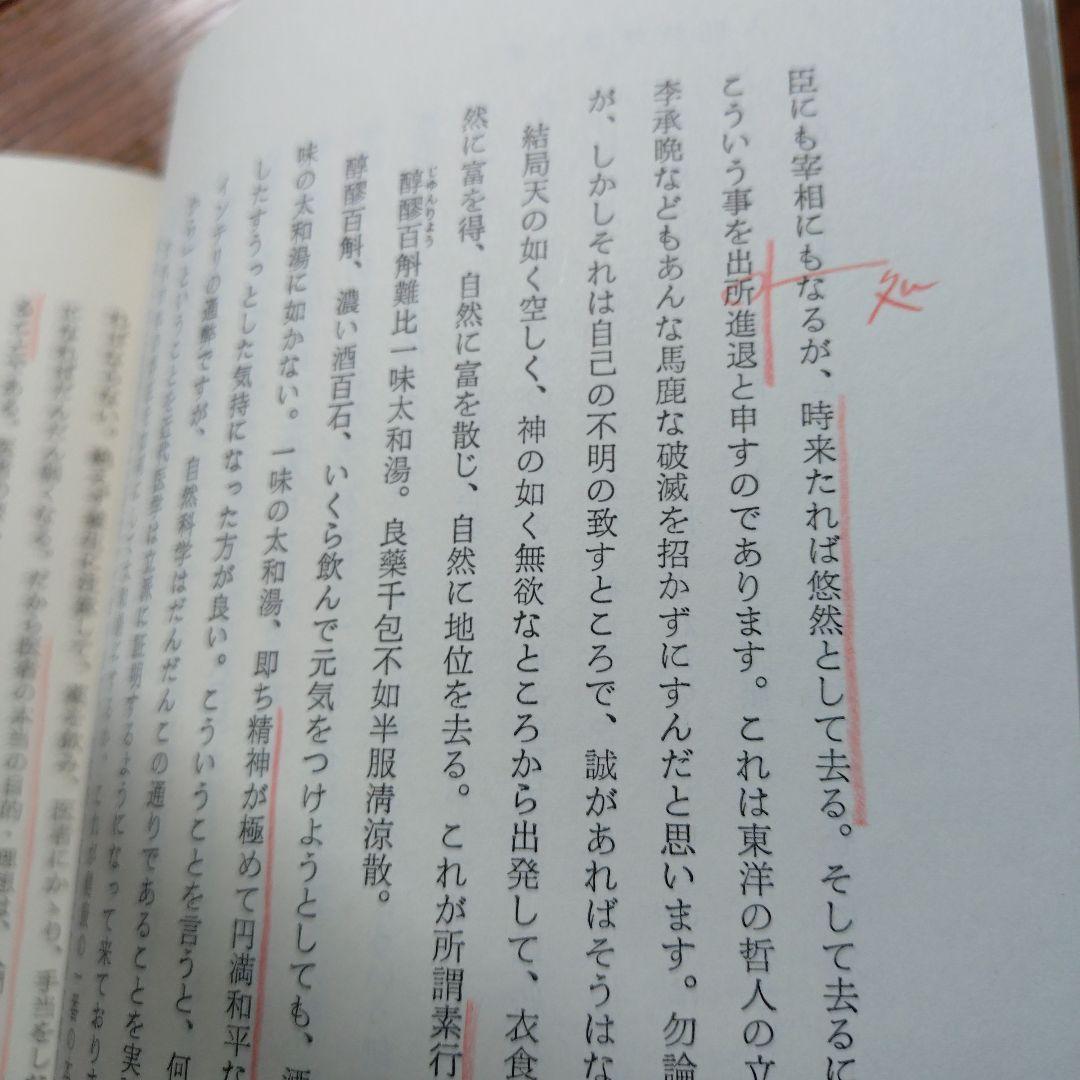 臣にも宰相にもなるが、時来たれば悠然として去る。そして去るに
こういう事を出所進退と申すのであります。これは東洋の哲人の立
李承晩などもあんな馬鹿な破滅を招かずにすんだと思います。勿論
が、しかしそれは自己の不明の致すところで、誠があればそうはな
結局天の如く空しく、神の如く無欲なところから出発して、衣食
然に富を得、自然に富を散じ、自然に地位を去る。これが所謂素行
じゅんりょう
醇醪百斛難比一味太和湯。良薬千包不如半服清涼散。
醇醪百斛、濃い酒百石、いくら飲んで元気をつけようとしても、酒
味の太和湯に如かない。一味の太和湯、即ち精神が極めて円満和平な
したすうっとした気持になった方が良い。こういうことを言うと、何
インテリの通弊ですが、自然科学はだんだんこの通りであることを実
ということを近代医学は立派に証明するようになって来ており
薬を飲み、医者にかゝり、手当をし
だから医者の本当の目的・理想は、